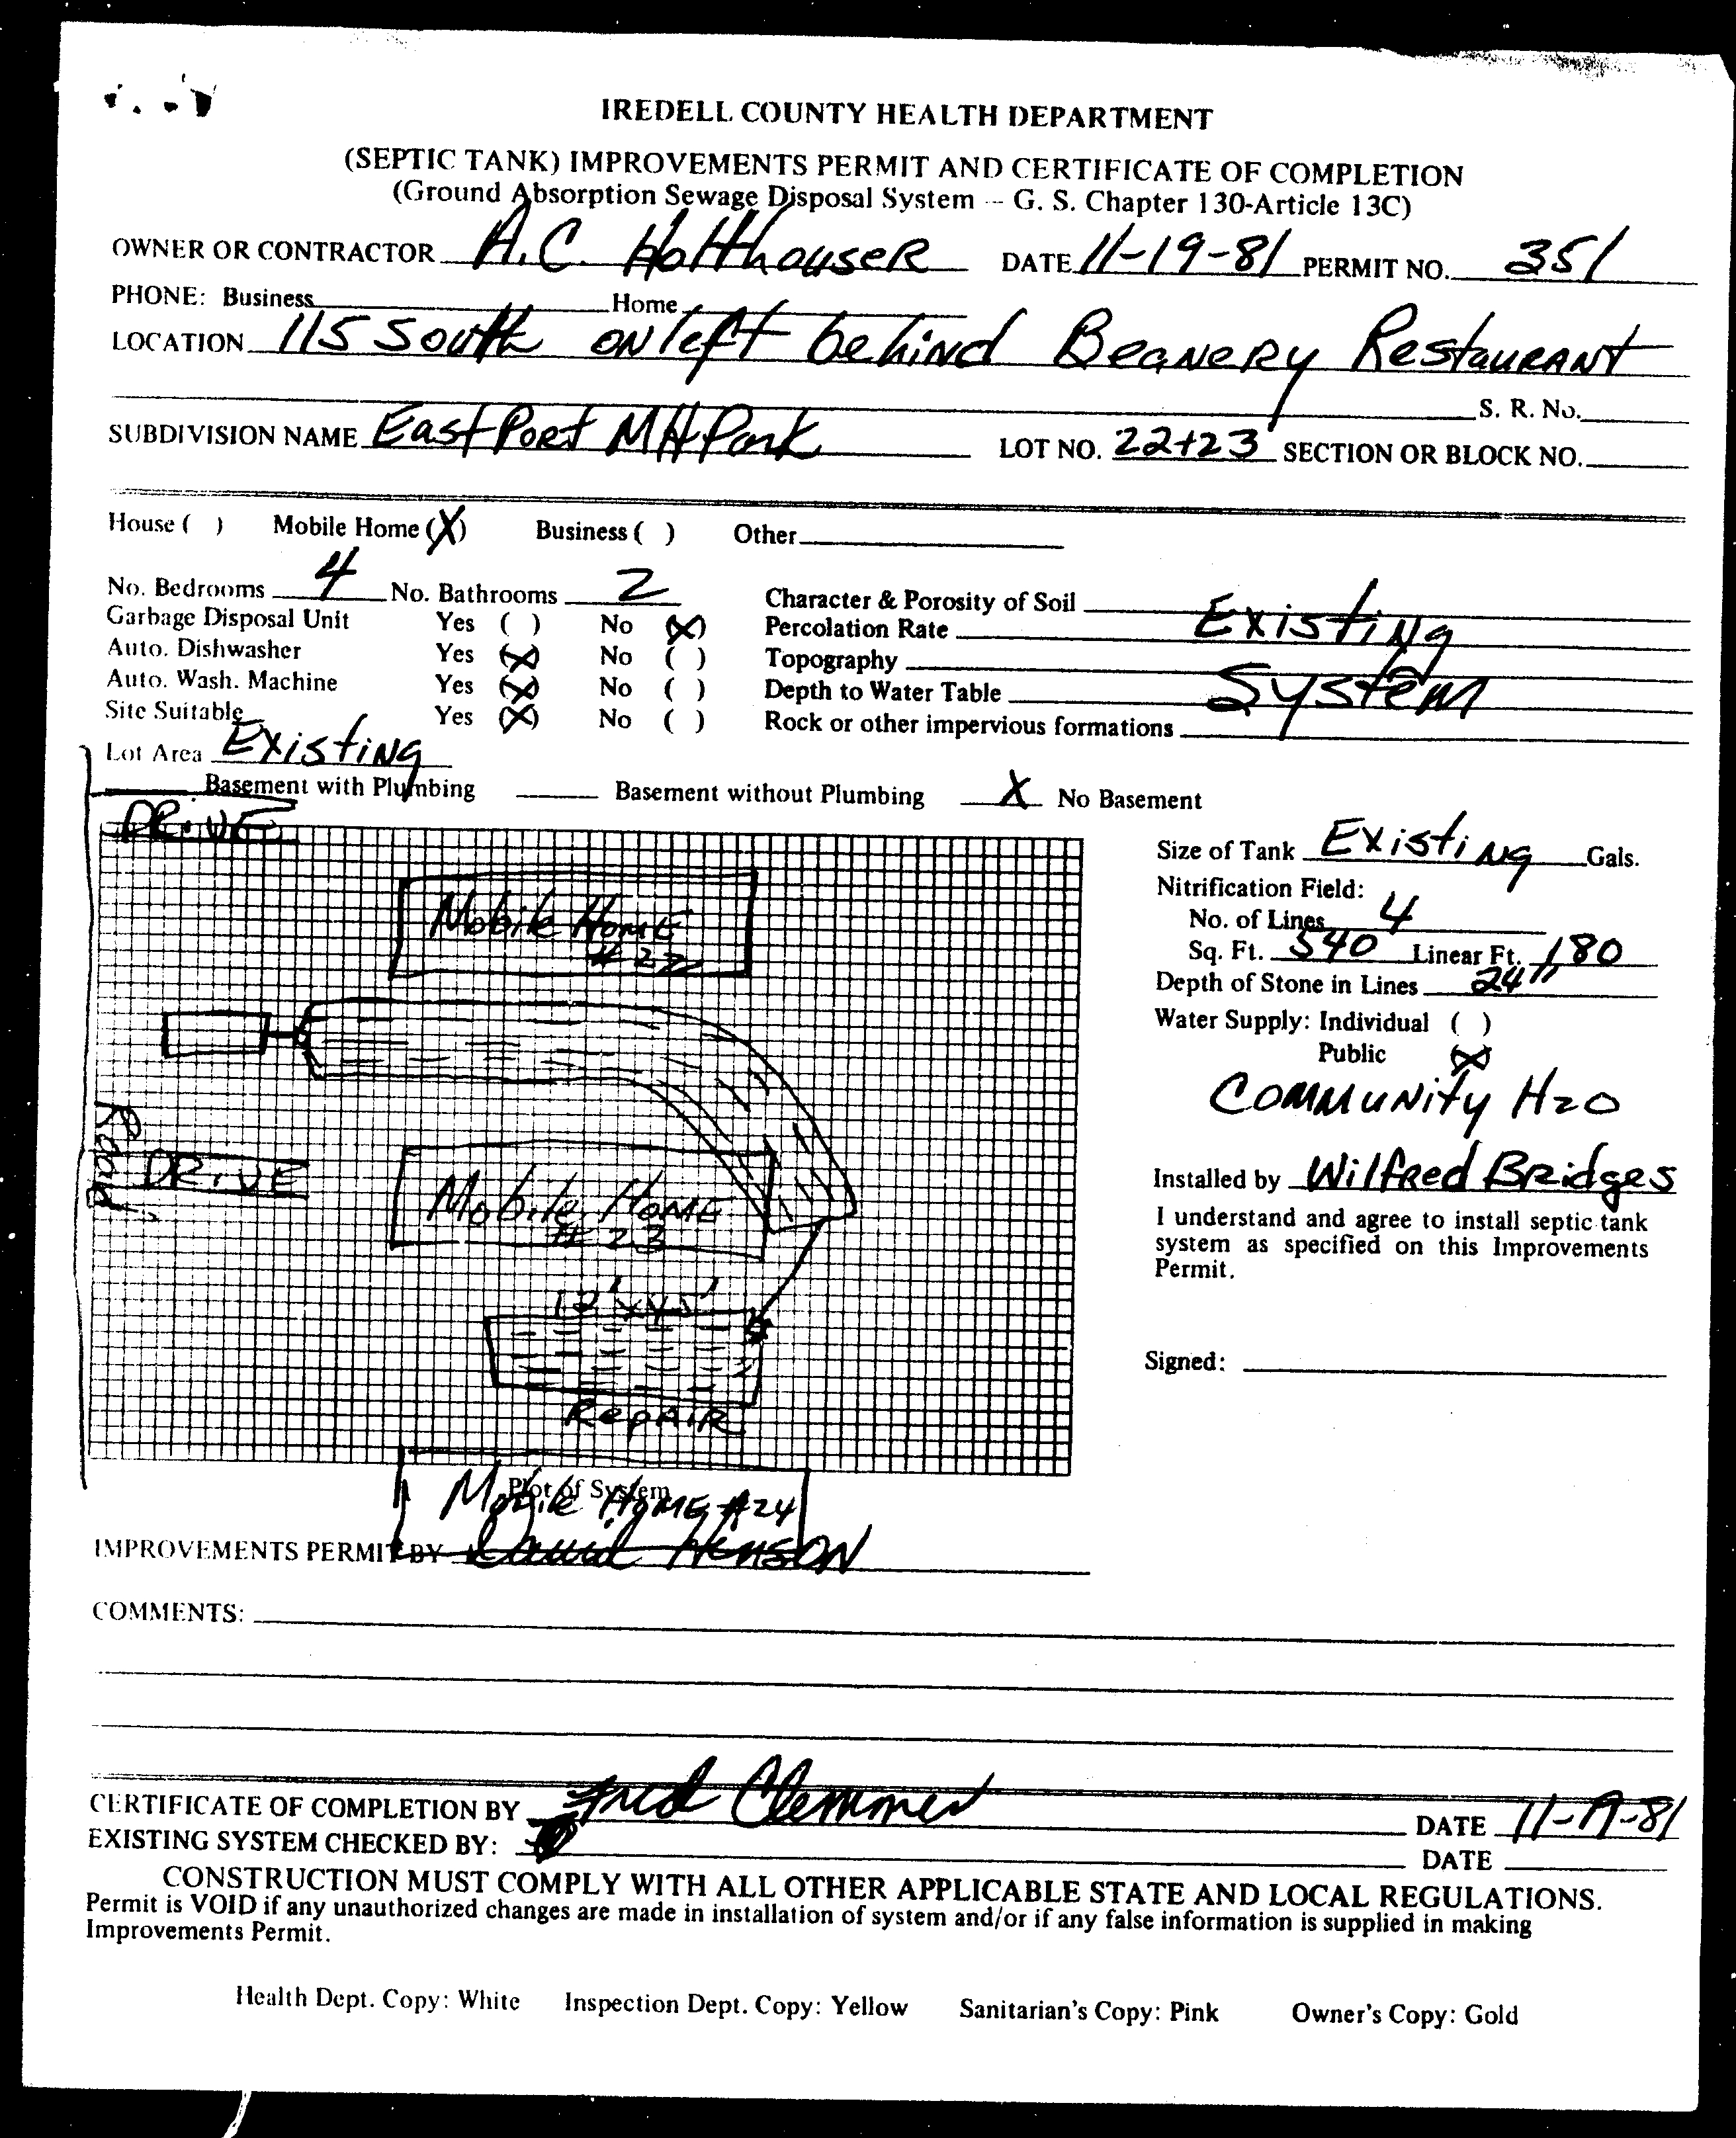 IREDELL COUNTY HEALTH DEPARTMENT
(SEPTIC TANK) IMPROVEMENTS PERMIT AND CERTIFICATE OF COMPLETION
(Ground Absorption Sewage Disposal System -- G. S. Chapter 130-Article 13C)
OWNER OR CONTRACTOR A.C. Holthouser DATE 11-19-81 PERMIT NO. 351
PHONE: Business Home
LOCATION 115 South on left behind Beanery Restaurant
S. R. No.
SUBDIVISION NAME East Port MH Park LOT NO. 22+23 SECTION OR BLOCK NO.
House ( ) Mobile Home (X) Business ( ) Other
No. Bedrooms 4 No. Bathrooms 2 Character & Porosity of Soil Existing
Garbage Disposal Unit Yes ( ) No (X) Percolation Rate
Auto. Dishwasher Yes (X) No ( ) Topography
Auto. Wash. Machine Yes (X) No ( ) Depth to Water Table System
Site Suitable Yes (X) No ( ) Rock or other impervious formations
Lot Area Existing
Basement with Plumbing Basement without Plumbing X No Basement
DRIVE
Size of Tank Existing Gals.
Mobile Home
# 22
Nitrification Field:
No. of Lines 4
Sq. Ft. 540 Linear Ft. 180
Depth of Stone in Lines 24"
Water Supply: Individual ( )
Public (X)
Community H2O
Road
DRIVE
Mobile Home
# 23
Installed by Wilfred Bridges
I understand and agree to install septic tank
system as specified on this Improvements
Permit.
12' x 45'
Repair
Signed:
Plot of System
Mobile Home #24
IMPROVEMENTS PERMIT BY David Henson
COMMENTS:
CERTIFICATE OF COMPLETION BY Fred Clemmer DATE 11-19-81
EXISTING SYSTEM CHECKED BY: DATE
CONSTRUCTION MUST COMPLY WITH ALL OTHER APPLICABLE STATE AND LOCAL REGULATIONS.
Permit is VOID if any unauthorized changes are made in installation of system and/or if any false information is supplied in making
Improvements Permit.
Health Dept. Copy: White Inspection Dept. Copy: Yellow Sanitarian's Copy: Pink Owner's Copy: Gold